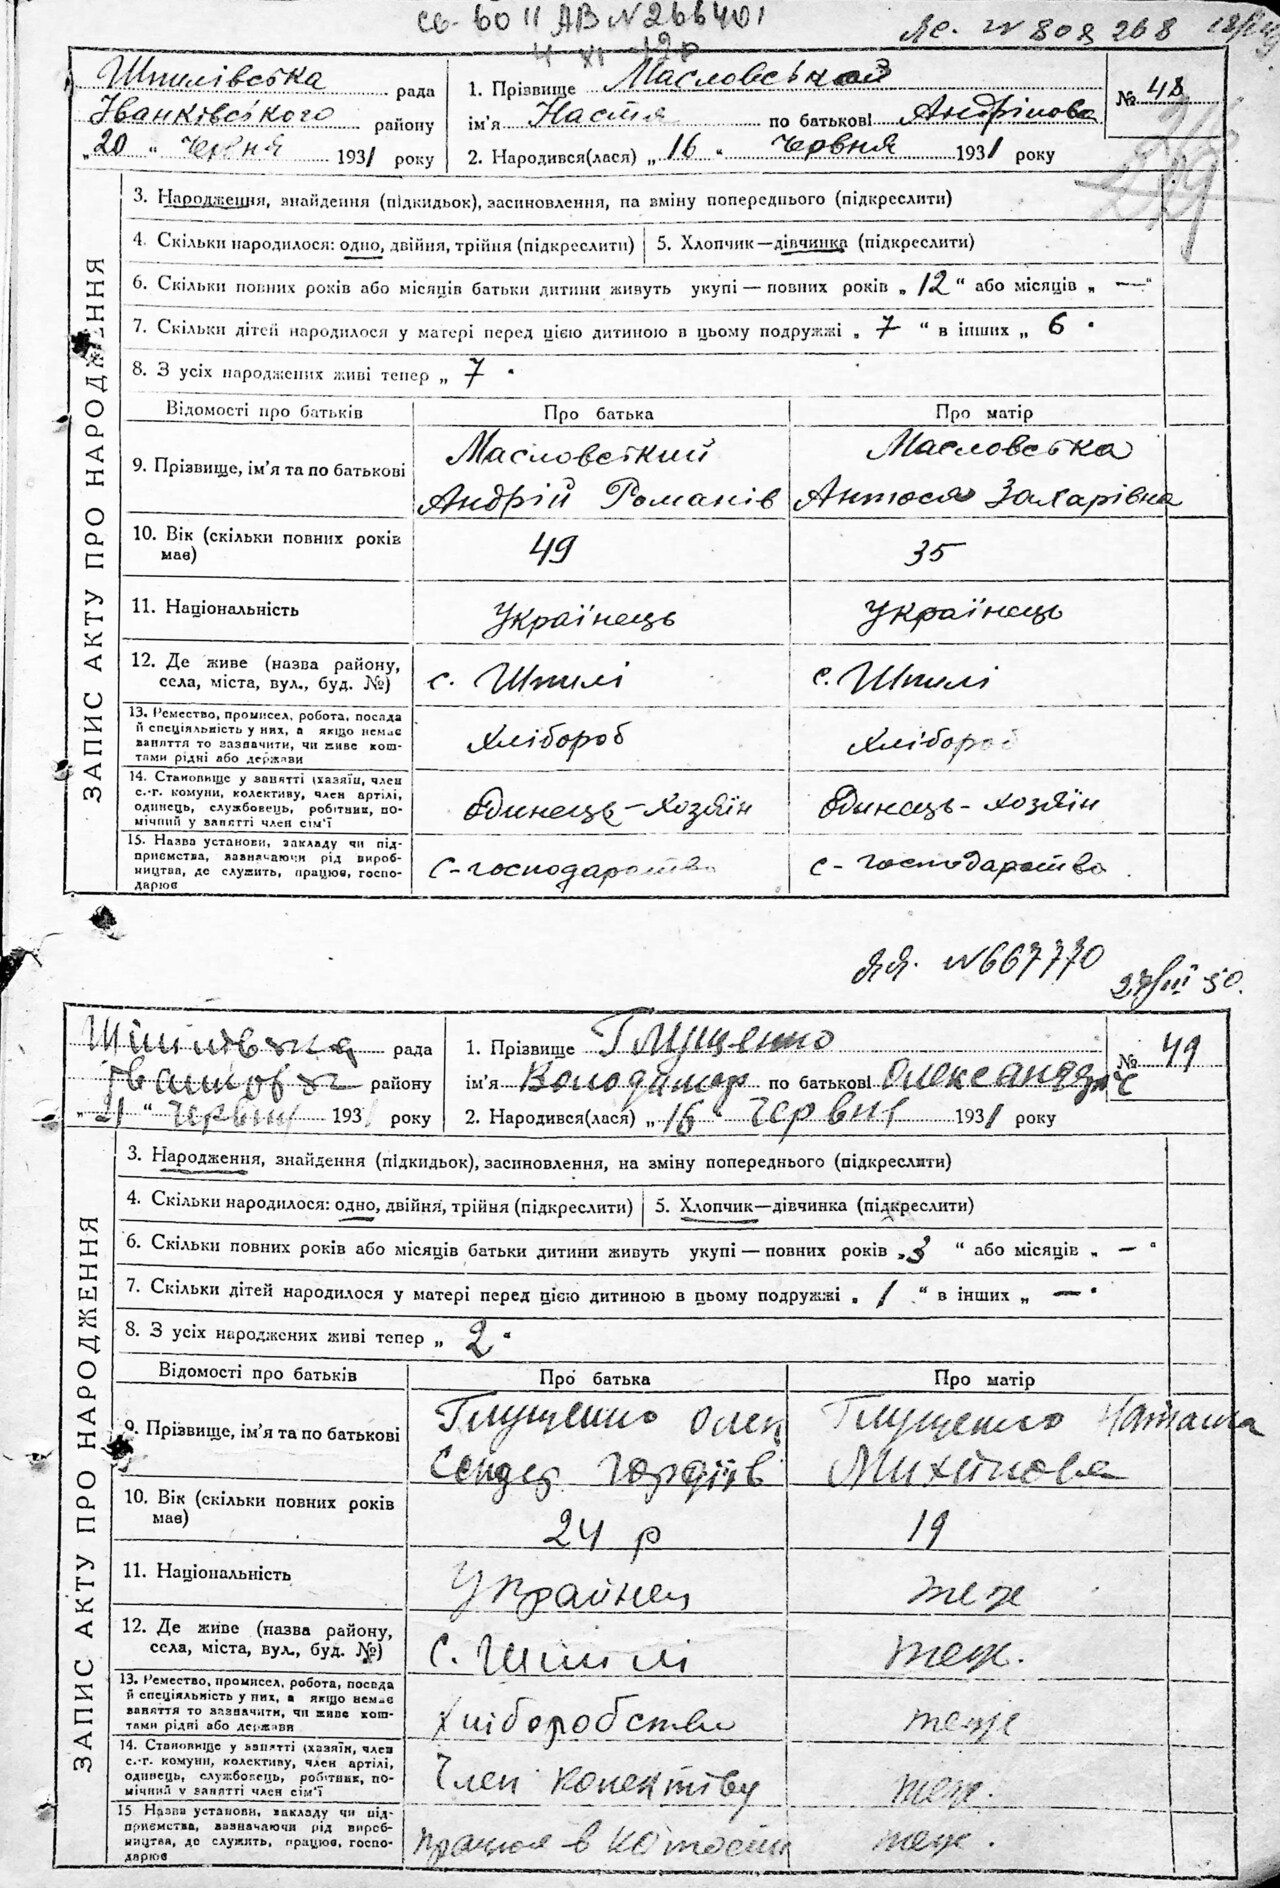 св- 60 II АВ N 266401
4 XI
ЯС. N 808 268
Шпилівська рада
Іванківського району
„20 “ Червня 1931 року
1. Прізвище Масловська
ім'я Настя по батькові Андріпова
2. Народився(лася) „ 16 “ Червня 1931 року
№ 48
ЗАПИС АКТУ ПРО НАРОДЖЕННЯ
3. Народження, знайдення (підкидьок), засиновлення, на зміну попереднього (підкреслити)
4. Скільки народилося: одно, двійня, трійня (підкреслити) 5. Хлопчик—дівчинка (підкреслити)
6. Скільки повних років або місяців батьки дитини живуть укупі — повних років „ 12 “ або місяців „ — “
7. Скільки дітей народилося у матері перед цією дитиною в цьому подружжі „ 7 “ в інших „ 6 “
8. З усіх народжених живі тепер „ 7 “
Відомості про батьків Про батька Про матір
9. Прізвище, ім'я та по батькові
Масловський Андрій Романів
Масловська Антося Захарівна
10. Вік (скільки повних років має) 49 35
11. Національність Українець Українець
12. Де живе (назва району, села, міста, вул., буд. №) с. Шпилі с. Шпилі
13. Ремество, промисел, робота, посада й спеціяльність у них, а якщо немає заняття то зазначити, чи живе коштами рідні або держави
Хлібороб Хлібороб
14. Становище у занятті (хазяїн, член с.-г. комуни, колективу, член артілі, одинець, службовець, робітник, помічний у занятті член сім'ї
Одинець-хозяїн Одинець-хозяїн
15. Назва установи, закладу чи підприємства, зазначаючи рід виробництва, де служить, працює, господарює
С-господарство с-господарство
ЯЯ. N 667770
27/III 50.
Шпилівська рада
району
„ 21 “ Червня 1931 року
1. Прізвище Глущенко
ім'я Володимир по батькові Олександрич
2. Народився(лася) „ 16 “ Червня 1931 року
№ 49
ЗАПИС АКТУ ПРО НАРОДЖЕННЯ
3. Народження, знайдення (підкидьок), засиновлення, на зміну попереднього (підкреслити)
4. Скільки народилося: одно, двійня, трійня (підкреслити) 5. Хлопчик—дівчинка (підкреслити)
6. Скільки повних років або місяців батьки дитини живуть укупі — повних років „ 3 “ або місяців „ — “
7. Скільки дітей народилося у матері перед цією дитиною в цьому подружжі „ 1 “ в інших „ — “
8. З усіх народжених живі тепер „ 2 “
Відомості про батьків Про батька Про матір
9. Прізвище, ім'я та по батькові
Глущенко Олек сендер Гордіїв
Глущенко Наташа
10. Вік (скільки повних років має) 24 р 19
11. Національність Украйнец теж
12. Де живе (назва району, села, міста, вул., буд. №) с. Шпилі теж.
13. Ремество, промисел, робота, посада й спеціяльність у них, а якщо немає заняття то зазначити, чи живе коштами рідні або держави
Хліборобство теж
14. Становище у занятті (хазяїн, член с.-г. комуни, колективу, член артілі, одинець, службовець, робітник, помічний у занятті член сім'ї
Член колективу теж.
15 Назва установи, закладу чи підприємства, зазначаючи рід виробництва, де служить, працює, господарює
працює в теж.